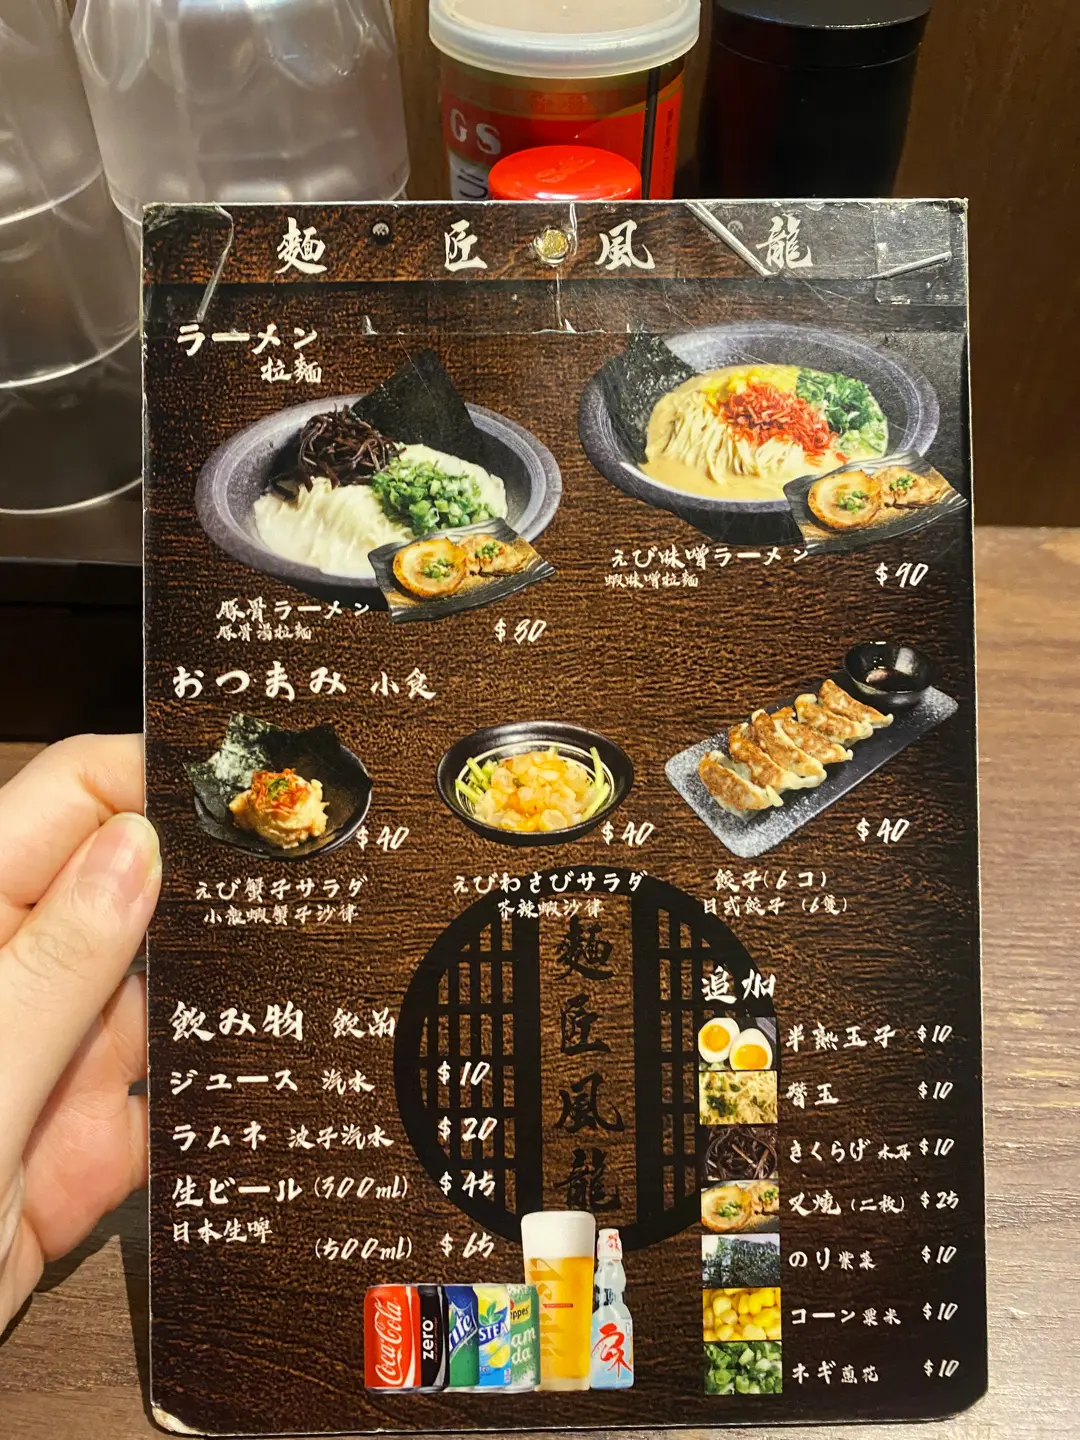 GS
麵匠風龍
ラーメン
拉麵
豚骨ラーメン
豚骨湯拉麵
$80
えび味噌ラーメン
蝦味噌拉麵
$90
おつまみ 小食
$40
えび蟹子サラダ
小龍蝦蟹子沙律
$40
えびわさびサラダ
芥辣蝦沙律
$40
餃子(6コ)
日式餃子(6隻)
麵匠風龍
飲み物 飲品
ジュース 汽水 $10
ラムネ 波子汽水 $20
生ビール(300ml) $45
日本生啤
(500ml) $65
追加
半熟玉子 $10
替玉 $10
きくらげ 木耳 $10
叉燒(二枚) $25
のり 紫菜 $10
コーン 粟米 $10
ネギ 蔥花 $10
Coca-Cola
zero